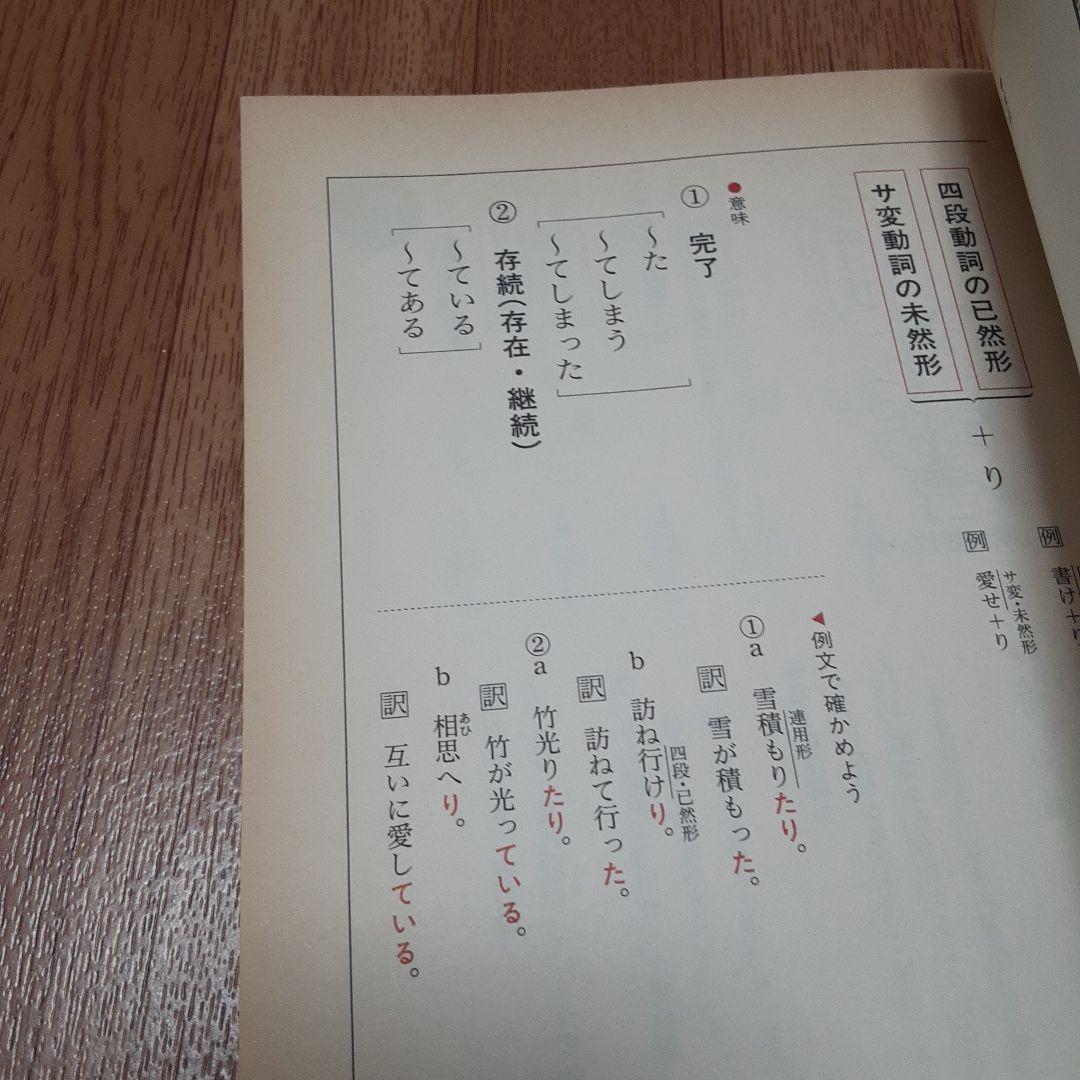 例 書け+り
四段動詞の已然形
サ変動詞の未然形
+ り
例 愛せ+り
サ変・未然形
●意味
① 完了
〜た
〜てしまう
〜てしまった
② 存続(存在・継続)
〜ている
〜てある
◀例文で確かめよう
①a 雪積もりたり。
連用形
訳 雪が積もった。
b 訪ね行けり。
四段・已然形
訳 訪ねて行った。
②a 竹光りたり。
訳 竹が光っている。
b 相思へり。
あひ
訳 互いに愛している。